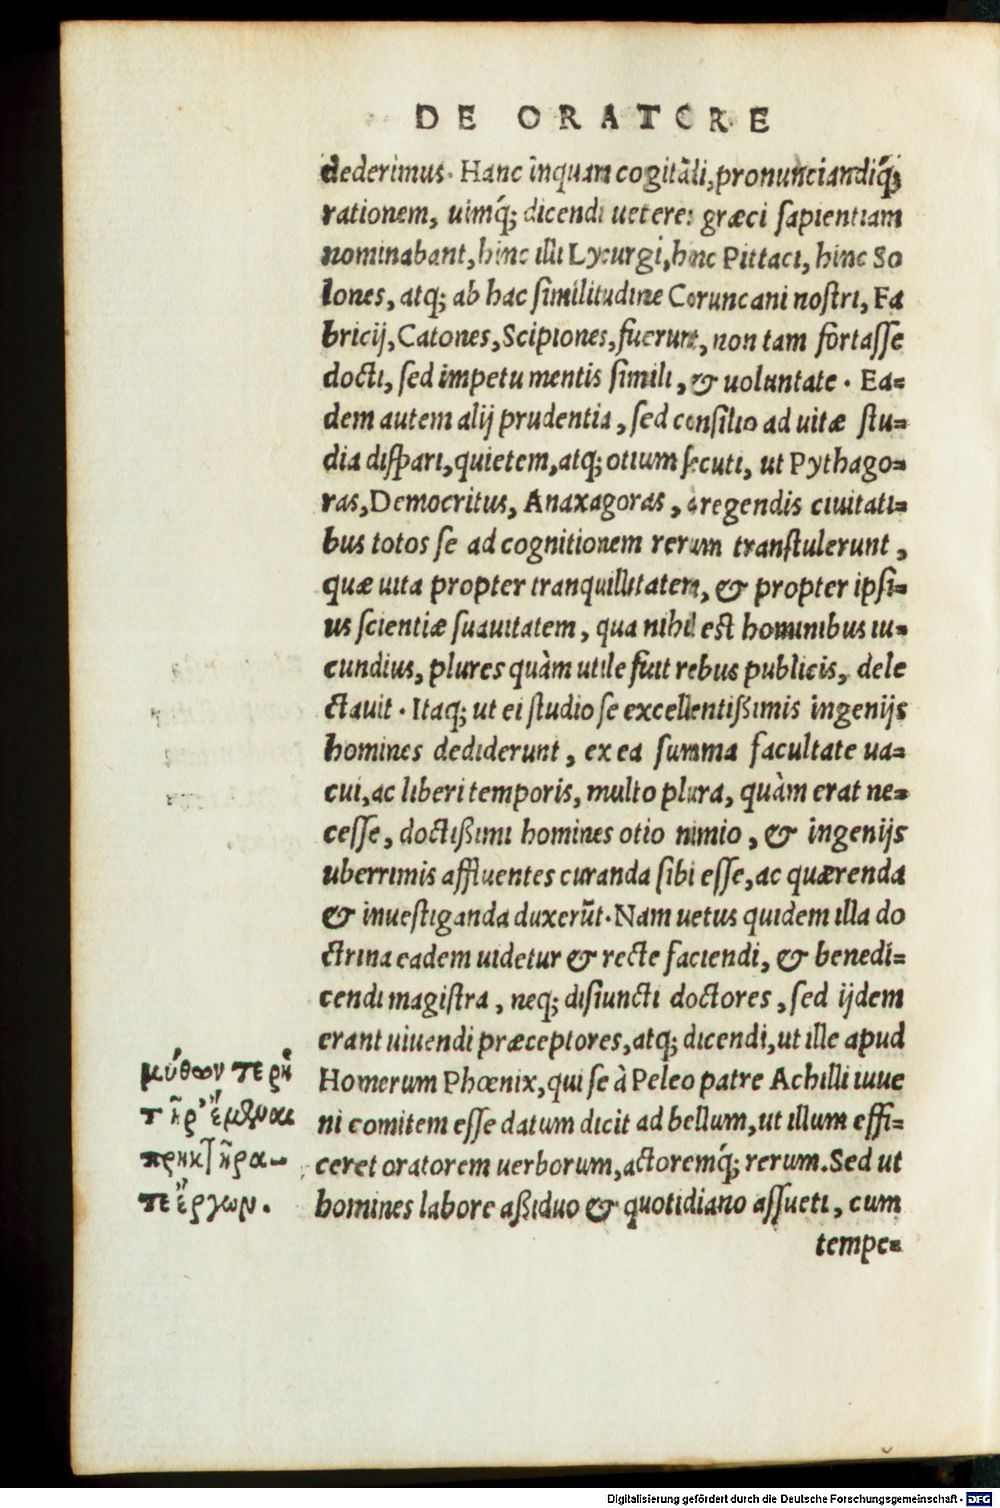 DE ORATORE
dederimus. Hanc inquam cogitãdi, pronunciandiq́;
rationem, uimq́; dicendi ueteres græci sapientiam
nominabant, hinc illi Lycurgi, hinc Pittaci, hinc So
lones, atq; ab hac similitudine Coruncani nostri, Fa
bricij, Catones, Scipiones, fuerunt, non tam fortasse
docti, sed impetu mentis simili, & uoluntate. Ea=
dem autem alij prudentia, sed consilio ad uitæ stu=
dia dispari, quietem, atq; otium secuti, ut Pythago=
ras, Democritus, Anaxagoras, à regendis ciuitati=
bus totos se ad cognitionem rerum transtulerunt,
quæ uita propter tranquillitatem, & propter ipsi=
us scientiæ suauitatem, qua nihil est hominibus iu=
cundius, plures quàm utile fuit rebus publicis, dele
ctauit. Itaq; ut ei studio se excellentißimis ingenijs
homines dediderunt, ex ea summa facultate ua=
cui, ac liberi temporis, multo plura, quàm erat ne=
cesse, doctißimi homines otio nimio, & ingenijs
uberrimis affluentes curanda sibi esse, ac quærenda
& inuestiganda duxerũt. Nam uetus quidem illa do
ctrina eadem uidetur & recte faciendi, & benedi=
cendi magistra, neq; disiuncti doctores, sed ijdem
erant uiuendi præceptores, atq; dicendi, ut ille apud
μύθων τε ῥη
Homerum Phœnix, qui se à Peleo patre Achilli iuue
τῆρ' ἔμεναι
ni comitem esse datum dicit ad bellum, ut illum effi=
πρηκτῆρα-
ceret oratorem uerborum, actoremq́; rerum. Sed ut
τε ἔργων.
homines labore aßiduo & quotidiano assueti, cum
tempe=
Digitalisierung gefördert durch die Deutsche Forschungsgemeinschaft - DFG